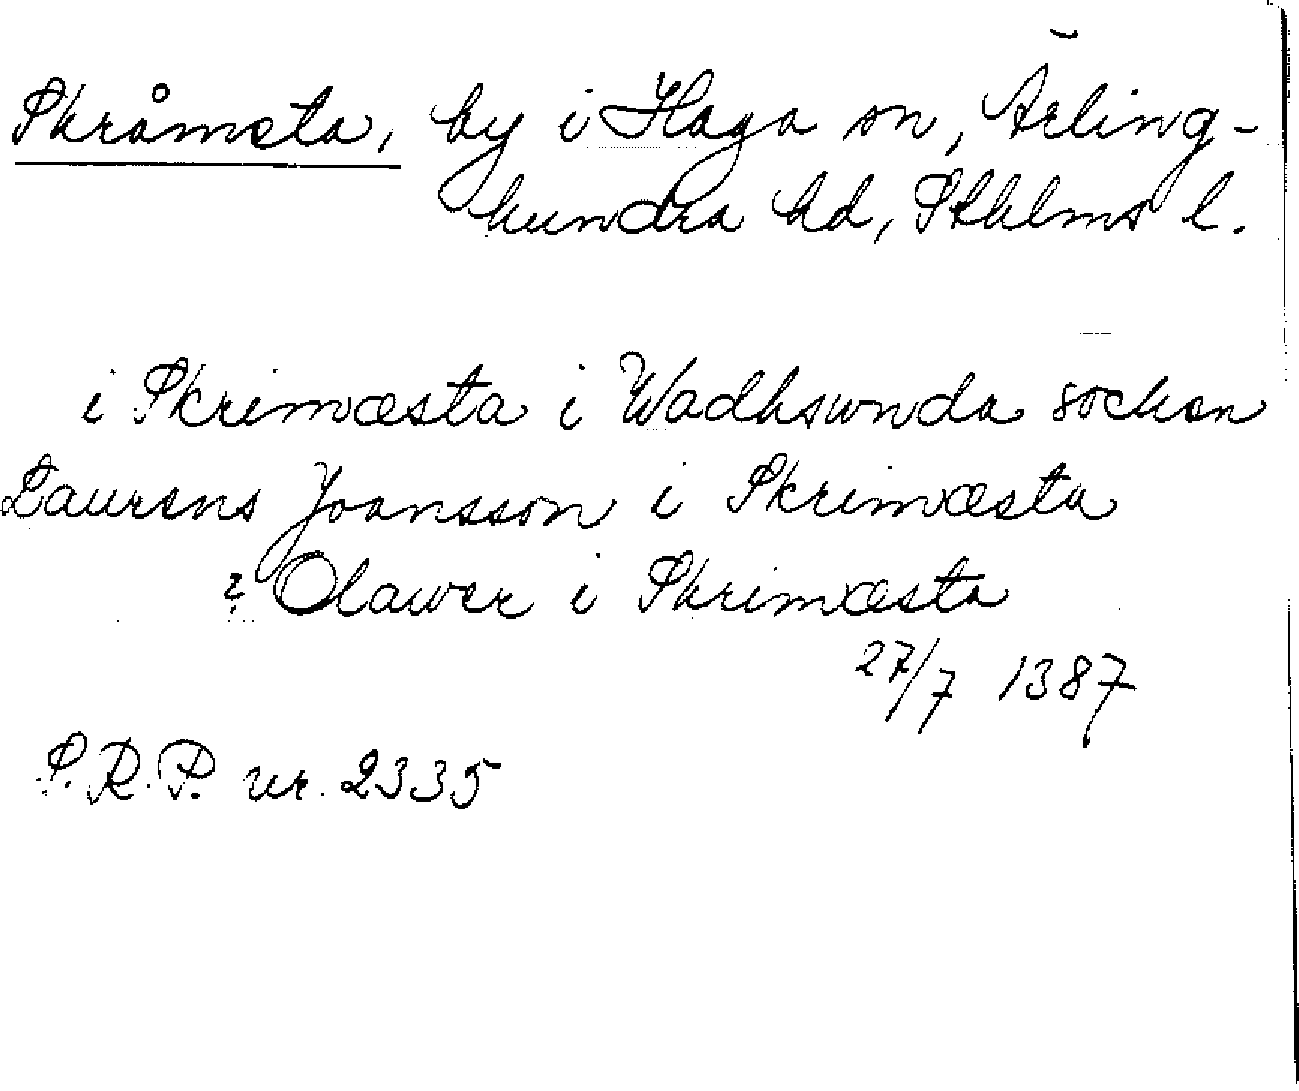 Skråmsta, by i Haga sn, Ärling-
hundra hd, Sthlms l.
i Skrimæsta i Wadhsunda sockan
Laurens Joansson i Skrimæsta
? Olawer i Skrimæsta
27/7 1387
S.R.P. nr. 2335